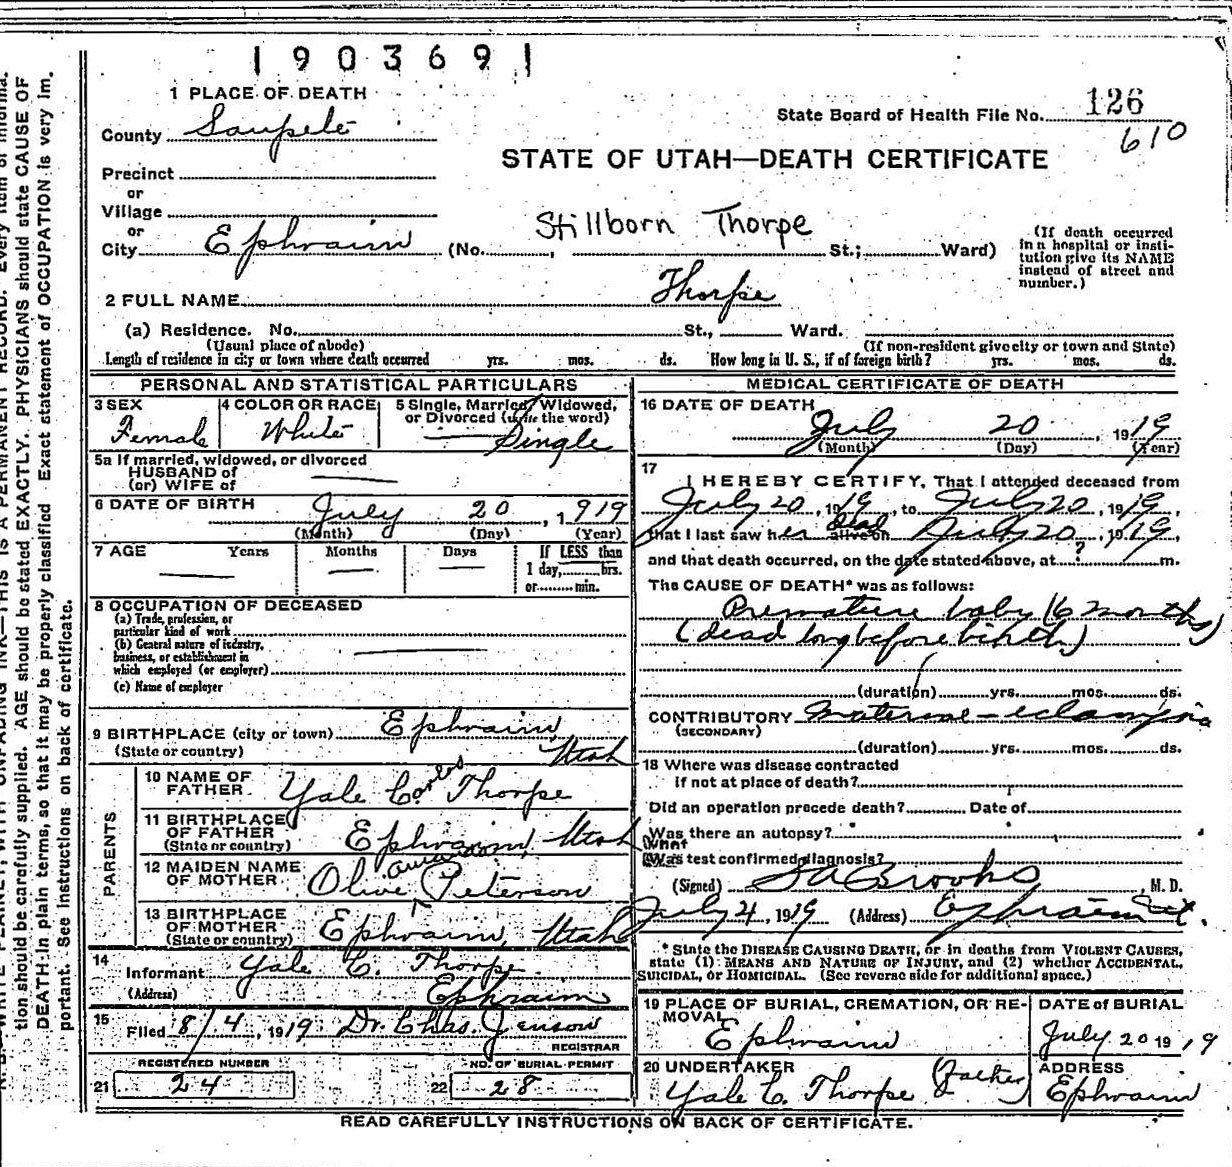 1903691
1 PLACE OF DEATH
State Board of Health File No. 126
610
County Sanpete
STATE OF UTAH—DEATH CERTIFICATE
Precinct
or
Village
or
Stillborn Thorpe
City Ephraim (No. , St.; Ward)
(If death occurred in a hospital or institution give its NAME instead of street and number.)
2 FULL NAME Thorpe
(a) Residence. No. St., Ward.
(Usual place of abode) (If non-resident give city or town and State)
Length of residence in city or town where death occurred yrs. mos. ds. How long in U. S., if of foreign birth? yrs. mos. ds.
PERSONAL AND STATISTICAL PARTICULARS
3 SEX Female
4 COLOR OR RACE White
5 Single, Married, Widowed, or Divorced (write the word) Single
5a If married, widowed, or divorced
HUSBAND of
(or) WIFE of
6 DATE OF BIRTH July 20, 1919
(Month) (Day) (Year)
7 AGE Years Months Days If LESS than
1 day, hrs.
or min.
8 OCCUPATION OF DECEASED
(a) Trade, profession, or
particular kind of work
(b) General nature of industry,
business, or establishment in
which employed (or employer)
(c) Name of employer
9 BIRTHPLACE (city or town) Ephraim,
(State or country) Utah
PARENTS
10 NAME OF FATHER Yale Thorpe
11 BIRTHPLACE OF FATHER
(State or country) Ephraim, Utah
12 MAIDEN NAME OF MOTHER Olive Peterson
13 BIRTHPLACE OF MOTHER
(State or country) Ephraim, Utah
14 Informant Yale C. Thorpe
(Address) Ephraim
15 Filed 8/4, 1919 Dr. Chas. Jenson
REGISTRAR
REGISTERED NUMBER
21 24
NO. OF BURIAL PERMIT
22 28
MEDICAL CERTIFICATE OF DEATH
16 DATE OF DEATH
July 20, 1919
(Month) (Day) (Year)
17
I HEREBY CERTIFY, That I attended deceased from
July 20, 1919, to July 20, 1919,
that I last saw her dead alive on July 20, 1919,
and that death occurred, on the date stated above, at ? m.
The CAUSE OF DEATH* was as follows:
Premature baby (6 months)
(dead long before birth)
(duration) yrs. mos. ds.
CONTRIBUTORY eclampsia
(SECONDARY)
(duration) yrs. mos. ds.
18 Where was disease contracted
if not at place of death?
Did an operation precede death? Date of
Was there an autopsy?
What test confirmed diagnosis?
(Signed) Brooks, M. D.
July 4, 1919 (Address) Ephraim Ut.
* State the DISEASE CAUSING DEATH, or in deaths from VIOLENT CAUSES,
state (1) MEANS AND NATURE OF INJURY, and (2) whether ACCIDENTAL,
SUICIDAL, or HOMICIDAL. (See reverse side for additional space.)
19 PLACE OF BURIAL, CREMATION, OR REMOVAL
Ephraim
DATE of BURIAL
July 20 1919
20 UNDERTAKER
Yale C. Thorpe (Father)
ADDRESS
Ephraim
READ CAREFULLY INSTRUCTIONS ON BACK OF CERTIFICATE.
tion should be carefully supplied. AGE should be stated EXACTLY. PHYSICIANS should state CAUSE OF
DEATH in plain terms, so that it may be properly classified. Exact statement of OCCUPATION is very im-
portant. See instructions on back of certificate.